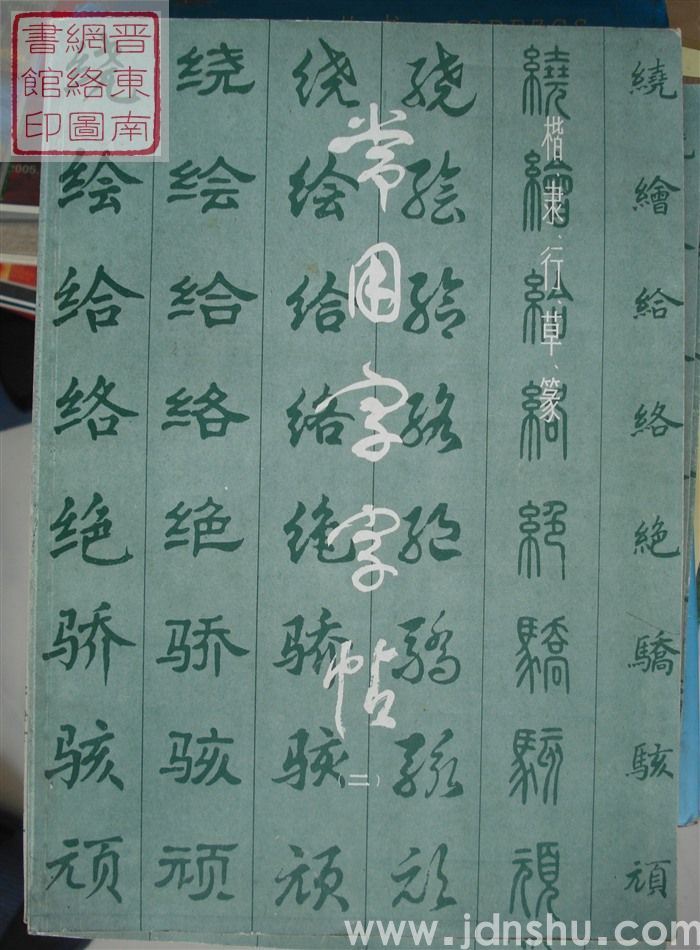 晋東南
網絡圖
書館印
常用字字帖
（二）
楷、隶、行、草、篆
绕 绕 绕 绕 繞 繞
绘 绘 绘 绘 繪 繪
给 给 给 给 給 給
络 络 络 络 絡 絡
绝 绝 绝 绝 絕 絶
骄 骄 骄 骄 驕 驕
骇 骇 骇 骇 駭 駭
顽 顽 顽 顽 頑 頑
2005.
www.jdnshu.com